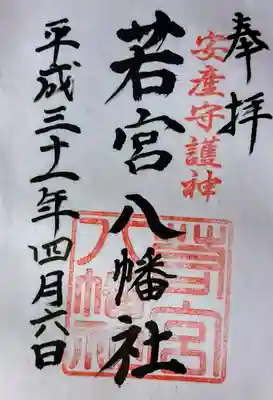 奉拝
安産守護神
若宮八幡社
若宮八幡社
平成三十一年四月六日